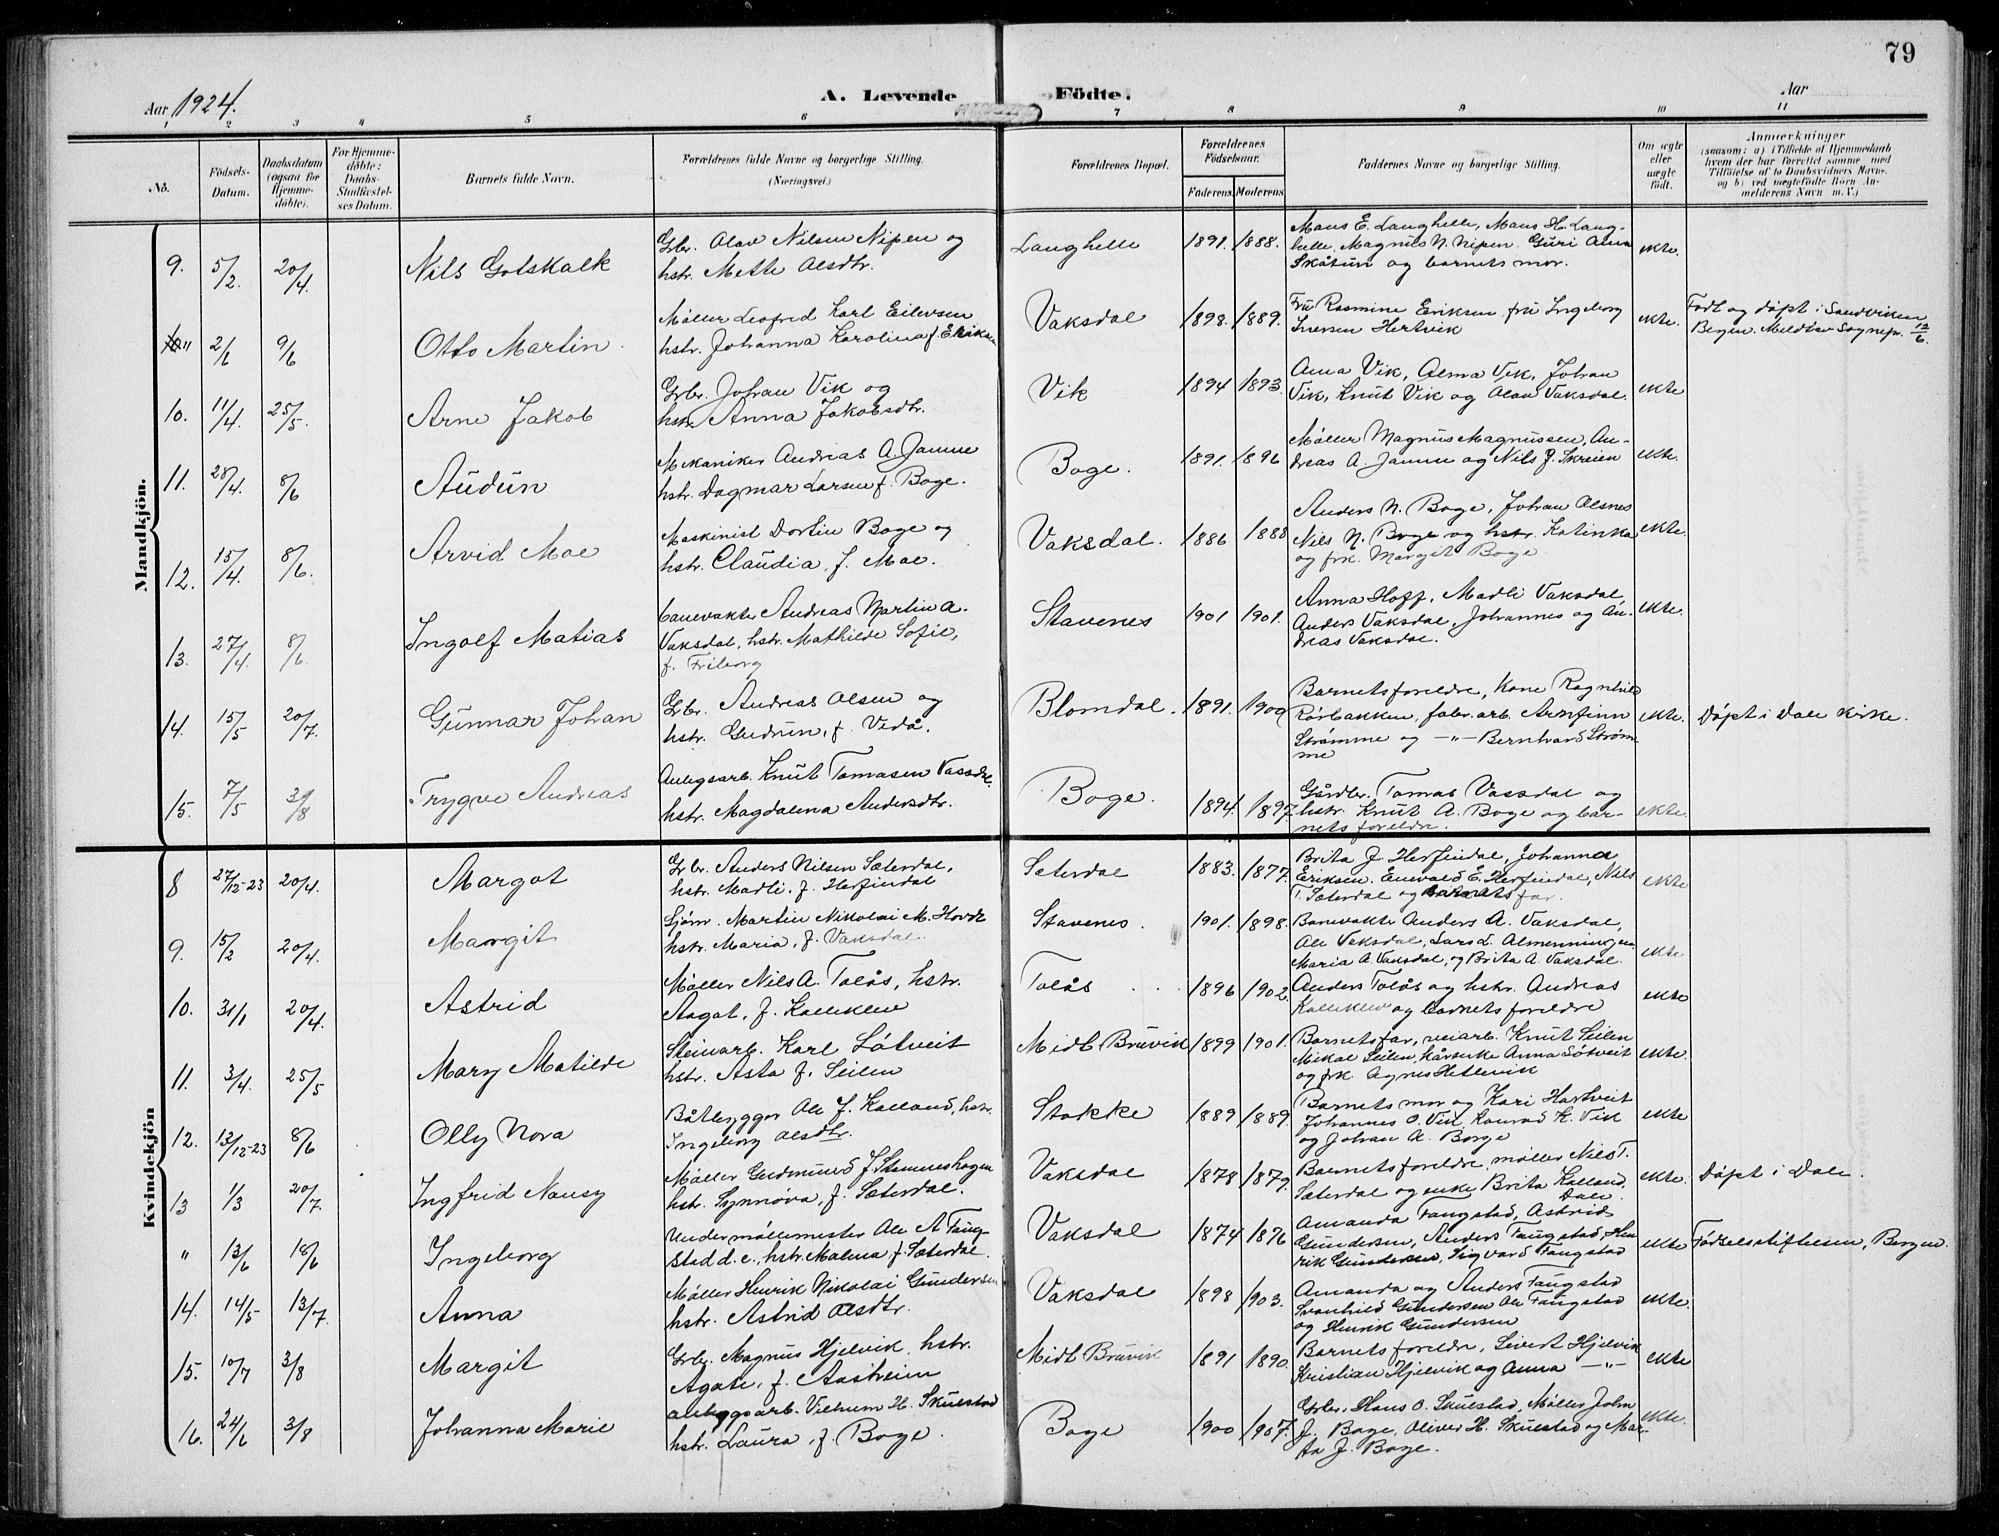 79
Aar 1924.
A. Levende
Födte.
Aar
1 2 3 4 5 6 7 8 9 10 11
No.
Födsels-
Datum.
Daabsdatum
(ogsaa for
Hjemme-
döbte).
For Hjemme-
döbte:
Daabs-
Stadfæstel-
ses Datum.
Barnets fulde Navn.
Forældrenes fulde Navne og borgerlige Stilling.
(Næringsvei.)
Forældrenes Bopæl.
Forældrenes
Födselsaar.
Faderens. Moderens.
Faddernes Navne og borgerlige Stilling.
Om ægte
eller
uægte
født.
Anmærkninger
(saasom: a) i Tilfælde af Hjemmedaab
hvem der har forrettet samme med
Tilföielse af to Daabsvidners Navne,
og b) ved uægtefödte Börn An-
melderens Navn m. V.)
Mandkjön.
9. 5/2. 20/4. Nils Gotskalk
Gbr. Olav Nilsen Nipen og
hstr. Mette Olsdtr.
Langhelle 1891. 1888.
Mons E. Langhelle, Mons H. Lang-
helle, Magnus N. Nipen. Guri Anna
Skåtun og barnets mor.
ekte.
" 2/6 9/6 Otto Martin.
Møller Leofred Karl Eilevsen
hstr. Johanna Karolina f. Eriksen
Vaksdal 1898. 1889.
Fru Rasmine Eriksen fru Ingeborg
Iversen Hertvik
ekte.
Født og døpt i Sandviken
Bergen. Meldt av Sognepr. 12/6.
10. 11/4. 25/5. Arne Jakob
Gbr. Johan Vik og
hstr. Anna Jakobsdtr.
Vik 1894 1893.
Anna Vik, Alma Vik, Johan
Vik, Knut Vik og Olav Vaksdal.
ekte
11. 28/4. 8/6 Audun
Mekaniker Andreas A. Jamne
hstr. Dagmar Larsen f. Boge.
Boge. 1891. 1896
Møller Magnus Magnussen, An-
dreas A. Jamne og Nils J. Skreien
ekte.
12. 15/4. 8/6. Arvid Moe
Maskinist Dortin Boge og
hstr. Claudia, f. Moe.
Vaksdal. 1886 1888
Anders N. Boge, Johan Olsnes
Nils N. Boge og hstr. Katinka
og frk. Margit Boge
ekte.
13. 27/4. 8/6. Ingolf Matias
banevakter Andreas Martin A.
Vaksdal, hstr. Mathilde Sofie,
f. Friborg
Stavenes 1901 1901.
Anna Hoff, Madli Vaksdal,
Anders Vaksdal, Johannes og An-
dreas Vaksdal.
ekte.
14. 15/5 20/7. Gunnar Johan
Gbr. Andreas Olsen og
hstr. Gudrun, f. Vedå.
Blomdal. 1891. 1900
Barnets foreldre, Kone Ragnhild
Rørbakken, fabr.arb. Arnfinn
Strømme og —"— Bernhard Strøm-
me
ekte.
Døpt i Dale kirke.
15. 7/5 3/8 Trygve Andreas
Anlegsarb. Knut Tomasen Vassdal
hstr. Magdalena Andersdtr.
Boge. 1894. 1897.
Gårdbr. Tomas Vassdal og
hstr. Knut A. Boge og bar-
nets foreldre.
ekte.
Kvindekjön
8 27/12-23 20/4. Margot
Gbr. Anders Nilsen Sæterdal,
hstr. Madli, f. Herfindal
Seterdal 1883. 1877.
Brita J. Herfindal, Johanna
Eriksen, Enevald E. Herfindal, Nils
T. Sæterdal og barnets far.
ekte
9. 15/2 20/4. Margit
Sjøm. Martin Nikolai M. Hovde
hstr. Maria, f. Vaksdal.
Stavenes. 1901. 1898.
Banevakter Anders A. Vaksdal,
Ole Vaksdal, Lars L. Almenningen
Maria A. Vaksdal, og Brita A. Vaksdal.
ekte
10. 31/1 20/4. Astrid
Møller Nils A. Tolås, hstr.
Aagot, f. Kalleklev
Tolås 1896 1902.
Anders Tolås og hstr. Andreas
Kalleklev og barnets foreldre
ekte
11. 3/4. 25/5 Mary Matilde
Steinarb. Karl Låtveit
hstr. Asta f. Seilen
Midt Bruvik 1899 1901.
Barnets far, veiarb. Knut Seilen
Mikal Seilen, Anna Låtveit
og frk. Agnes Hetlevik
ekte.
12. 13/12-23 8/6 Olly Nora
Båtbygger Ole J. Kalland, hstr.
Ingeborg Olsdtr.
Stokke 1889 1889.
Barnets mor og Kari Hartveit
Johannes O. Vik Konrad K. Vik
og Johan A. Borge
ekte
13 1/3 20/7. Ingfrid Nansy
Møller Gudmund J. Stamneshagen
hstr. Synnøva, f. Sæterdal.
Vaksdal 1878 1879.
Barnets foreldre, møller Nils T.
Sæterdal og enke Brita Kalland,
Dale
ekte.
Døpt i Dale.
" 13/6 18/6 Ingeborg
Undermøllemester Ole A Faug-
stad d.e., hstr. Malena f. Sæterdal.
Vaksdal 1874 1876
Amanda Faugstad, Astrid
Gundersen, Anders Faugstad, Hen-
rik Gundersen, Sigvard Faugstad
ekte
Fødselsstiftelsen, Bergen.
14. 14/5 13/7. Anna
Møller Henrik Nikolai Gundersen
hstr. Astrid Olsdtr.
Vaksdal 1898 1903.
Amanda og Anders Faugstad
Svanhild Gundersen Ole Faugstad
og Henrik Gundersen
ekte.
15. 10/7 3/8 Margit
Gbr. Magnus Hjelvik, hstr.
Agate, f. Aasheim
Midt Bruvik 1891 1890.
Barnets foreldre, Sivert Hjelvik
Kristian Hjelvik og Anna —"—
ekte
16. 24/6 3/8 Johanna Marie
anleggsarb. Vilhelm H. Skulstad
hstr. Laura, f. Boge.
Boge 1900 1907.
Gbr. Hans O. Skulstad, Møller John
J. Boge, Oliver H. Skulstad og Mar-
ta J. Boge.
ekte.